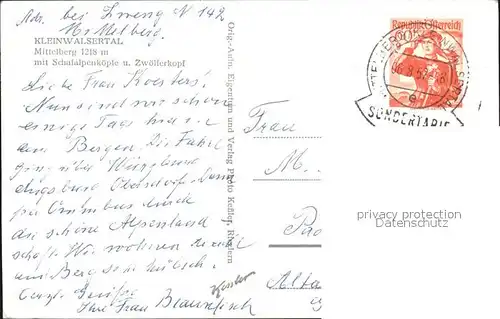 Adr. bei Zweng N 142
Mittelberg.
KLEINWALSERTAL
Mittelberg 1218 m
mit Schafalpenköpfe u. Zwölferkopf
Liebe Frau Koesters!
Nun sind wir schon
einige Tage hier in
den Bergen. Die Fahrt
ging über Würzburg
Augsburg Oberstdorf. Dann
per Omnibus durch
die schöne Alpenland
schaft. Wir wohnen
am Berg sehr hübsch.
Grüße
Ihre Frau Braunfisch
Orig.-Aufn. Eigentum und Verlag Photo Keßler, Riezlern
Republik Österreich
SONDERTARIF
Frau
M.
Pa
Alta
privacy protection
Datenschutz
Kessler